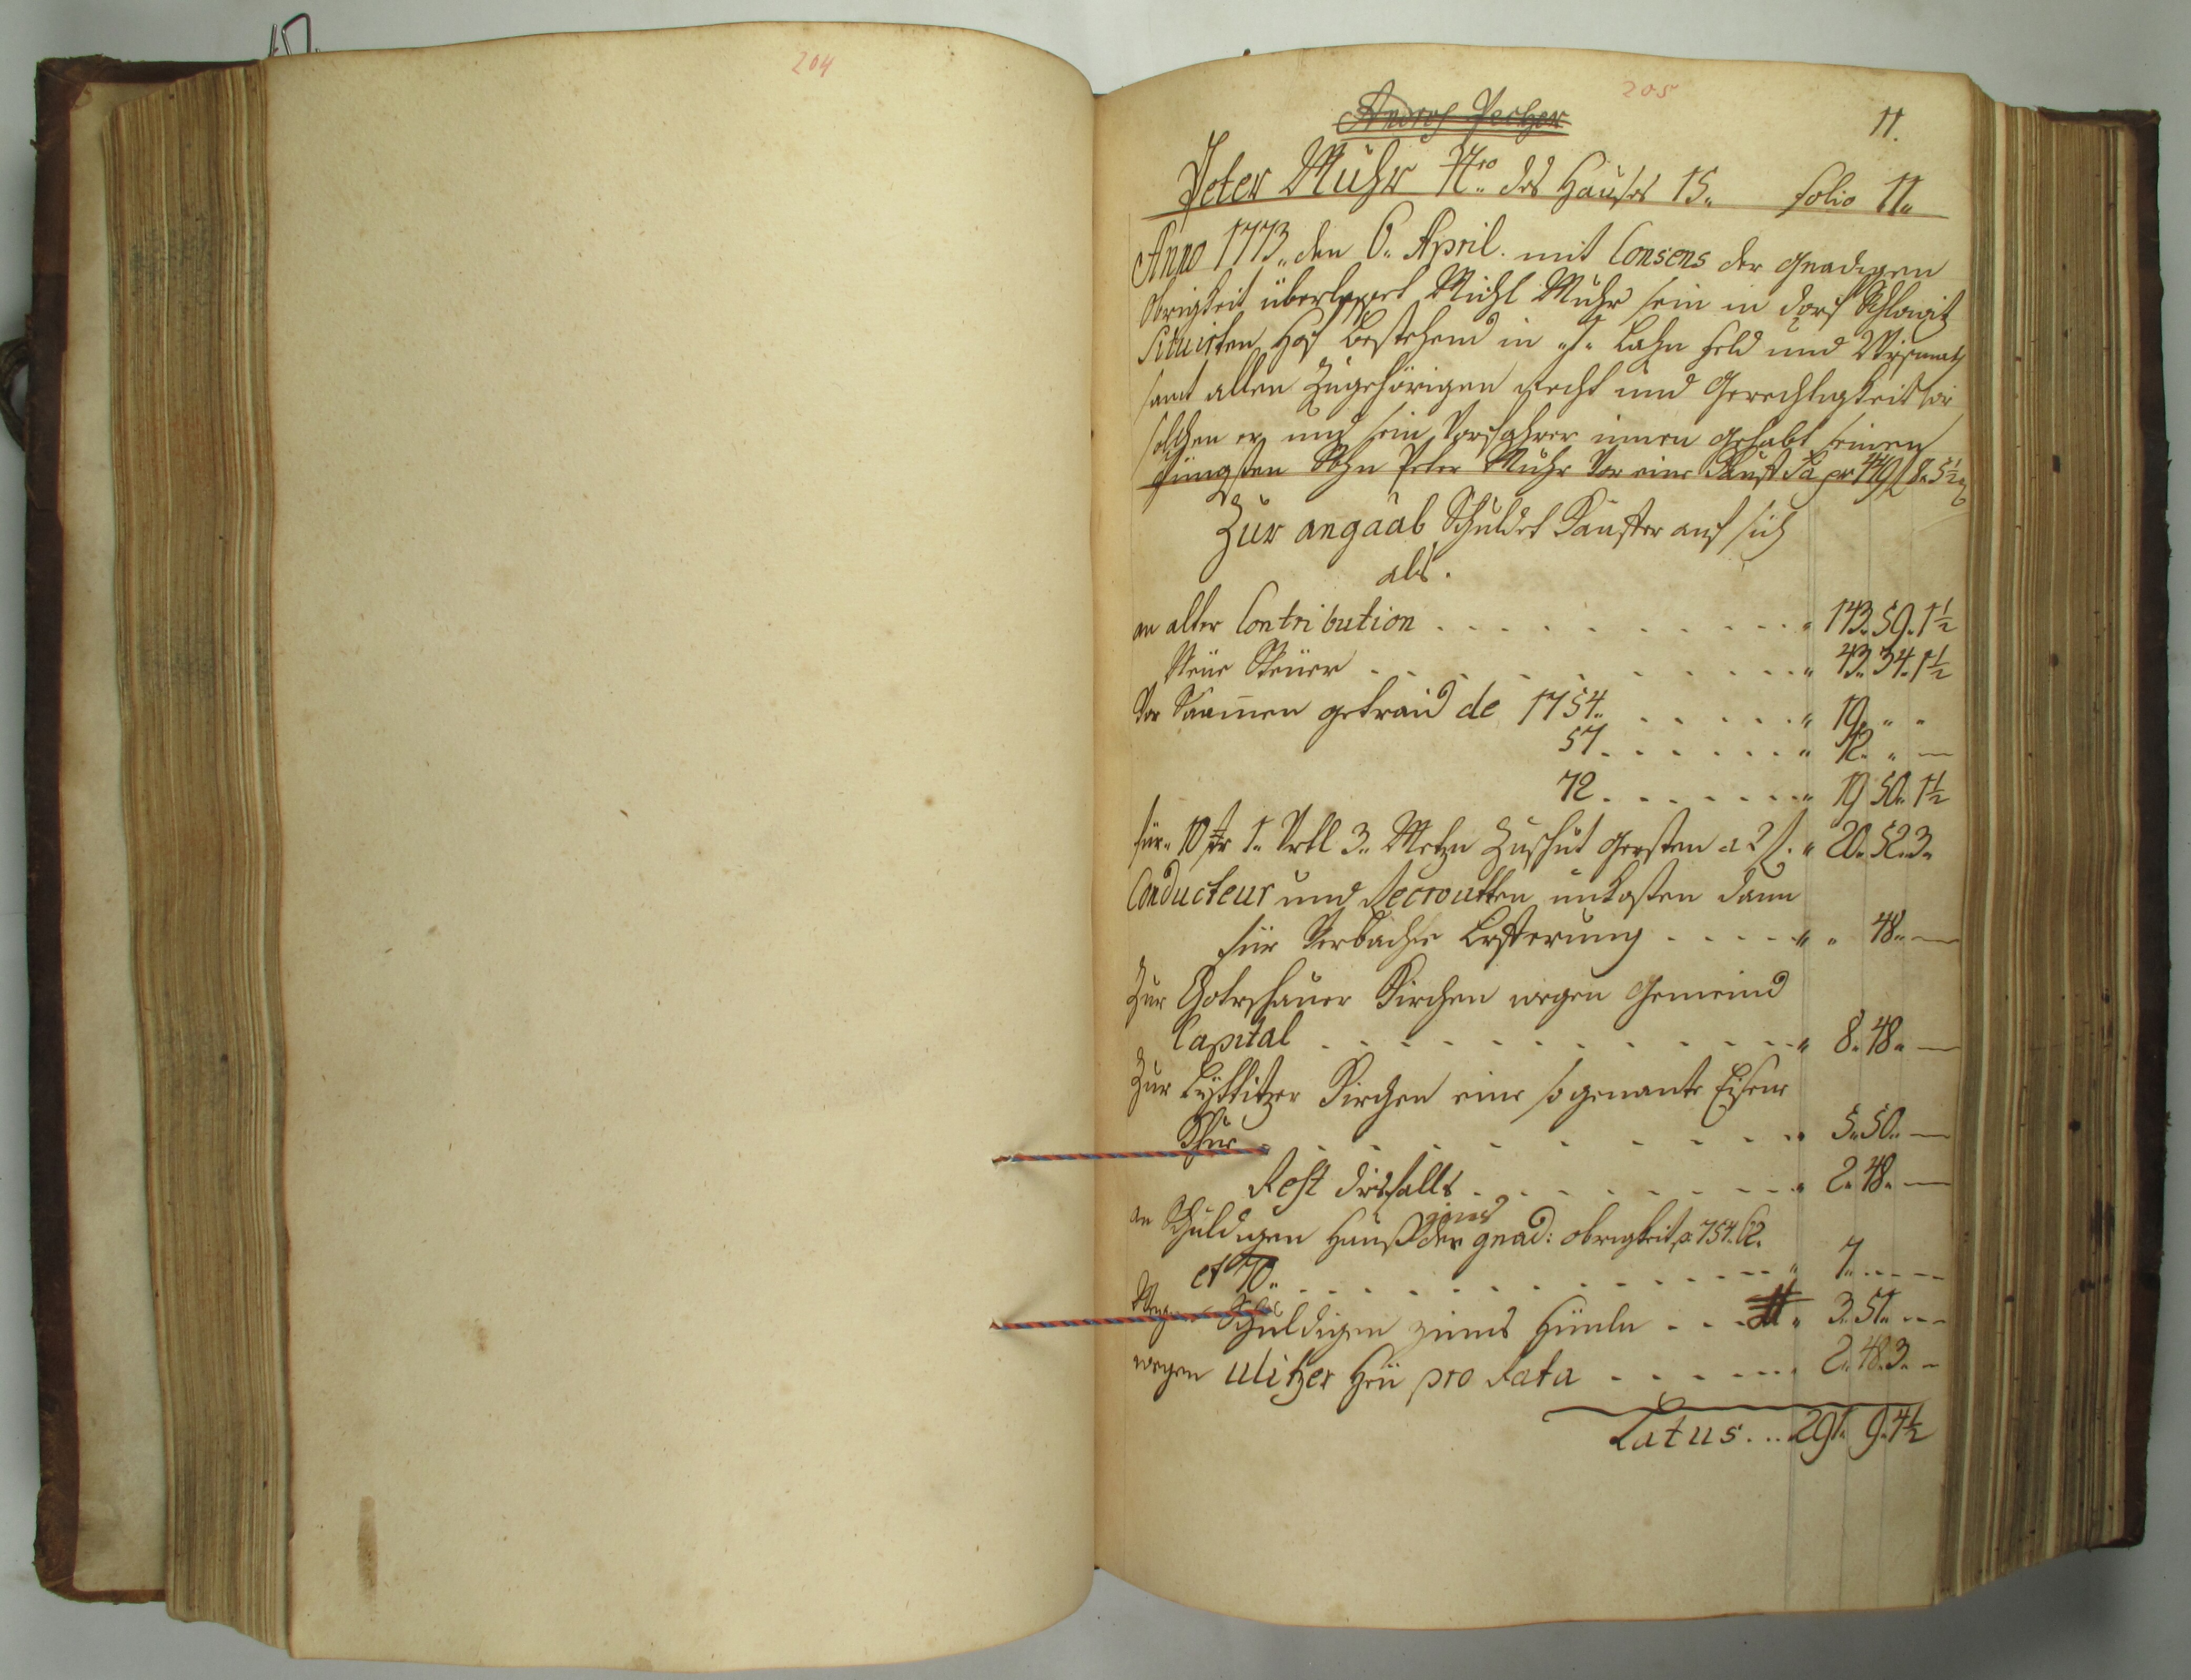 204
205
Andres Pecher
11.
Peter Muhr Nro. des Hauses 15. folio 11.
Anno 1773. den 6. April. mit Consens der Gnädigen
Obrigkeit überlasset Michl Muhr sein in dorf
Situirten Hof bestehend in Lahn Feld und
samt allen Zugehörigen Recht und Gerechtigkeit wie
solchen er und sein Vorfahrer innen gehabt seinen
Jüngsten Sohn Peter Muhr vor eine Kauf Sa pr 449 f 8. 5½
Zur angaab Schuldet Kauffer auf sich
als.
an alter Contribution . . . 143. 59. 1½
Neüe Steüer . . . 43. 34. 1½
Vor Saamen getraid de 1754. . . . 19. " "
57. . . . 12. " —
72. . . . 19 50. 1½
für 10 1. Vrtl 3. Metzn Zuschut Gersten a 2 f. " 20. 52. 3.
Conducteur und Recroutten unkosten dann
für Lifferung . . . " 48. —
Zur Kirchen wegen Gemeind
Capital . . . 8. 48. —
Zur Kirchen eine so genante Eiserne
Khue . . . 5. 50. —
Rest disfalls . . . 2. 48. —
zins
an Schuldigen Hauß der gnäd: obrigkeit p. 754. 62.
et 70. . . . 7. — —
Schuldigen zins Hünln . . . 3. 51. —
wegen Ulitzer Heü pro Rata . . . 2. 48. 3. —
Latus . . . 291. 9. 4½